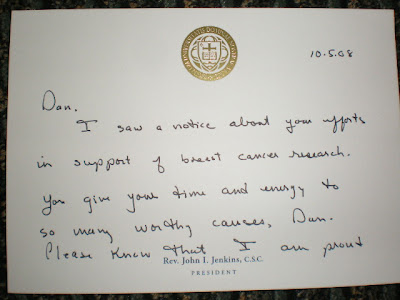 10.5.08
Dan.
I saw a notice about your efforts
in support of breast cancer research.
You give your time and energy to
so many worthy causes, Dan.
Please know that I am proud
Rev. John I. Jenkins, C.S.C.
PRESIDENT